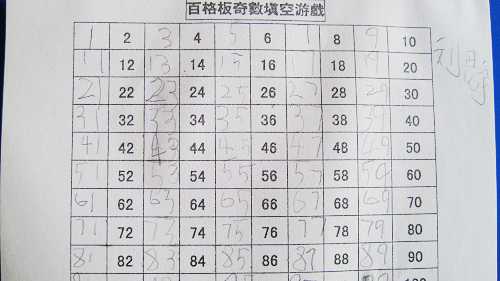 百格板奇數填空游戲
1 2 3 4 5 6 1 8 9 10
11 12 13 14 15 16 17 18 19 20
21 22 23 24 25 26 27 28 29 30
31 32 33 34 35 36 37 38 39 40
41 42 43 44 45 46 47 48 49 50
51 52 53 54 55 56 57 58 59 60
61 62 63 64 65 66 67 68 69 70
71 72 73 74 75 76 77 78 79 80
81 82 83 84 85 86 87 88 89 90